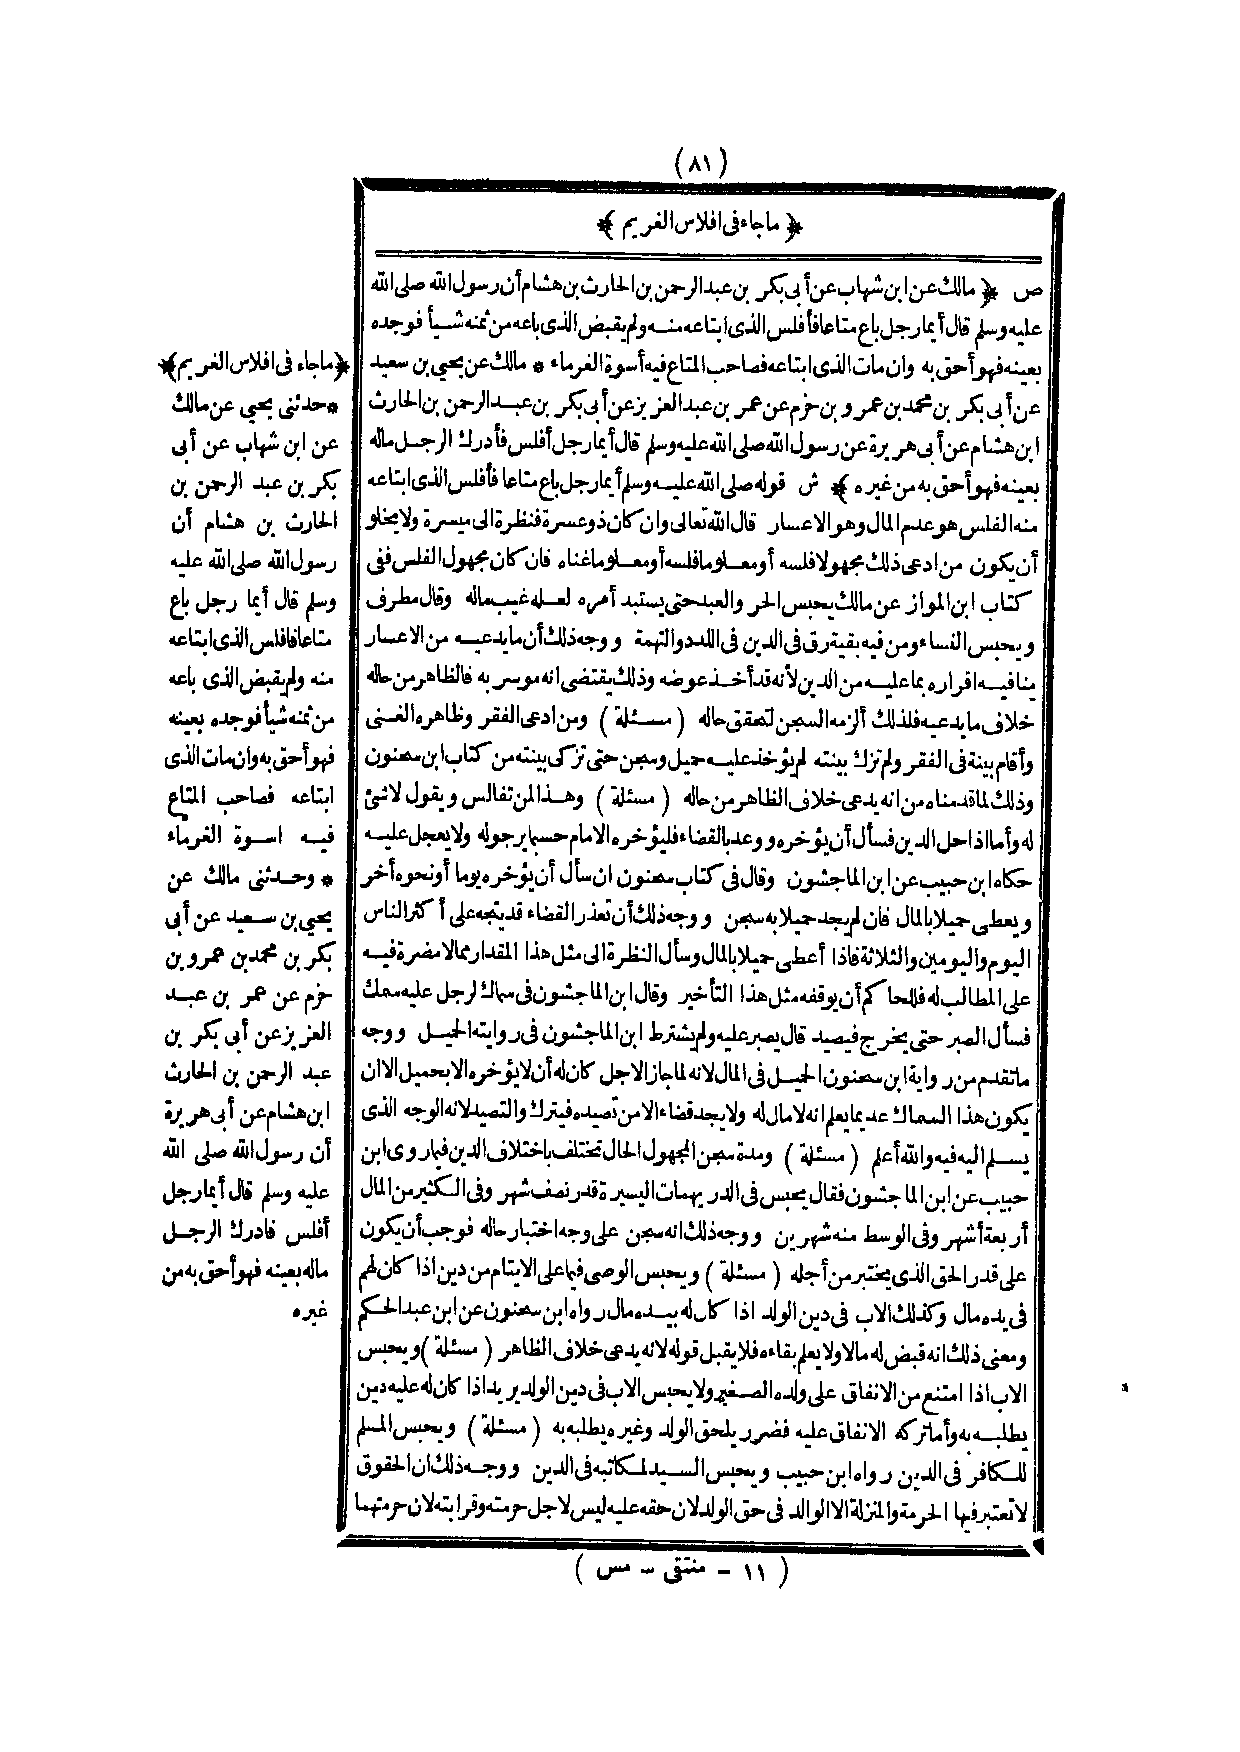 (٨١)
﴿ ماجاء فى افلاس الغريم ﴾
ص ﴿ مالك عن ابن شهاب عن أبى بكر بن عبد الرحمن بن الحارث بن هشام أن رسول الله صلى الله
عليه وسلم قال أيما رجل باع متاعا فأفلس الذى ابتاعه منه ولم يقبض الذى باعه من ثمنه شيأ فوجده
بعينه فهو أحق به وان مات الذى ابتاعه فصاحب المتاع فيه أسوة الغرماء * مالك عن يحيى بن سعيد
عن أبى بكر بن محمد بن عمرو بن حزم عن عمر بن عبد العزيز عن أبى بكر بن عبد الرحمن بن الحارث
ابن هشام عن أبى هريرة عن رسول الله صلى الله عليه وسلم قال أيما رجل أفلس فأدرك الرجل ماله
بعينه فهو أحق به من غيره ﴾ ش قوله صلى الله عليه وسلم أيما رجل باع متاعا فأفلس الذى ابتاعه
منه الفلس هو عدم المال وهو الاعسار قال الله تعالى وان كان ذو عسرة فنظرة الى ميسرة ولا يخلو
أن يكون من ادعى ذلك مجهولا فلسه أو معلوما فلسه أو معلوما غناه فان كان مجهول الفلس ففى
كتاب ابن المواز عن مالك يحبس الحر والعبد حتى يستبد أمره لعله غيب ماله وقال مطرف
ويحبس النساء ومن فيه بقية رق فى الدين فى اللدد والتهمة ووجه ذلك أن ما يدعيه من الاعسار
ينافيه اقراره بما عليه من الدين لأنه قد أخذ عوضه وذلك يقتضى انه موسر به فالظاهر من حاله
خلاف ما يدعيه فلذلك ألزمه السجن لتحقق حاله ( مسئلة ) ومن ادعى الفقر وظاهره الغنى
وأقام بينة فى الفقر ولم تزك بينته لم يؤخذ عليه حميل وسجن حتى تزكى بينته من كتاب ابن سحنون
وذلك لما قدمناه من انه يدعى خلاف الظاهر من حاله ( مسئلة ) وهذا لمن تفالس ويقول لا شئ
له وأما اذا حل الدين فسأل أن يؤخره ووعد بالقضاء فليؤخره الامام حسبما يرجو له ولا يعجل عليه
حكاه ابن حبيب عن ابن الماجشون وقال فى كتاب سحنون ان سأل أن يؤخره يوما أو نحوه أخر
ويعطى حميلا بالمال فان لم يجد حميلا به سجن ووجه ذلك أن تعذر القضاء قد يتجه على أكثر الناس
اليوم واليومين والثلاثة فاذا أعطى حميلا بالمال وسأل النظرة الى مثل هذا المقدار مما لا مضرة فيه
على المطالب له فللحاكم أن يوقفه مثل هذا التأخير وقال ابن الماجشون فى سماك لرجل عليه سمك
فسأل الصبر حتى يخرج فيصيد قال يصبر عليه ولم يشترط ابن الماجشون فى روايته الحميل ووجه
ما تقدم من رواية ابن سحنون الحميل فى المال لانه لما جاز الاجل كان له أن لا يؤخره الا بحميل الا ان
يكون هذا السماك عديما يعلم انه لا مال له ولا يجد قضاء الا من تصيده فيترك والتصيد لانه الوجه الذى
يسلم اليه فيه والله أعلم ( مسئلة ) ومدة سجن المجهول الحال تختلف باختلاف الدين فيما روى ابن
حبيب عن ابن الماجشون فقال يحبس فى الدريهمات اليسيرة قدر نصف شهر وفى الكثير من المال
أربعة أشهر وفى الوسط منه شهرين ووجه ذلك انه سجن على وجه اختبار حاله فوجب أن يكون
على قدر الحق الذى يختبر من أجله ( مسئلة ) ويحبس الوصى فيما على الايتام من دين اذا كان لهم
فى يده مال وكذلك الاب فى دين الولد اذا كان له بيده مال رواه ابن سحنون عن ابن عبد الحكم
ومعنى ذلك انه قبض له مالا ولا يعلم بقاءه فلا يقبل قوله لانه يدعى خلاف الظاهر ( مسئلة ) ويحبس
الاب اذا امتنع من الانفاق على ولده الصغير ولا يحبس الاب فى دين الولد يريد اذا كان له عليه دين
يطلبه به وأما تركه الانفاق عليه فضرر يلحق الولد وغيره يطلبه به ( مسئلة ) ويحبس المسلم
للكافر فى الدين رواه ابن حبيب ويحبس السيد لمكاتبه فى الدين ووجه ذلك ان الحقوق
لا تعتبر فيها الحرمة والمنزلة الا الوالد فى حق الولد لان حقه عليه ليس لاجل حرمته وقرابته لان حرمتهما
﴿ ماجاء فى افلاس الغريم ﴾
* حدثنى يحيى عن مالك
عن ابن شهاب عن أبى
بكر بن عبد الرحمن بن
الحارث بن هشام أن
رسول الله صلى الله عليه
وسلم قال أيما رجل باع
متاعا فافلس الذى ابتاعه
منه ولم يقبض الذى باعه
من ثمنه شيأ فوجده بعينه
فهو أحق به وان مات الذى
ابتاعه فصاحب المتاع
فيه اسوة الغرماء
* وحدثنى مالك عن
يحيى بن سعيد عن أبى
بكر بن محمد بن عمرو بن
حزم عن عمر بن عبد
العزيز عن أبى بكر بن
عبد الرحمن بن الحارث
ابن هشام عن أبى هريرة
أن رسول الله صلى الله
عليه وسلم قال أيما رجل
أفلس فادرك الرجل
ماله بعينه فهو أحق به من
غيره
( ١١ - منتقى - مس )